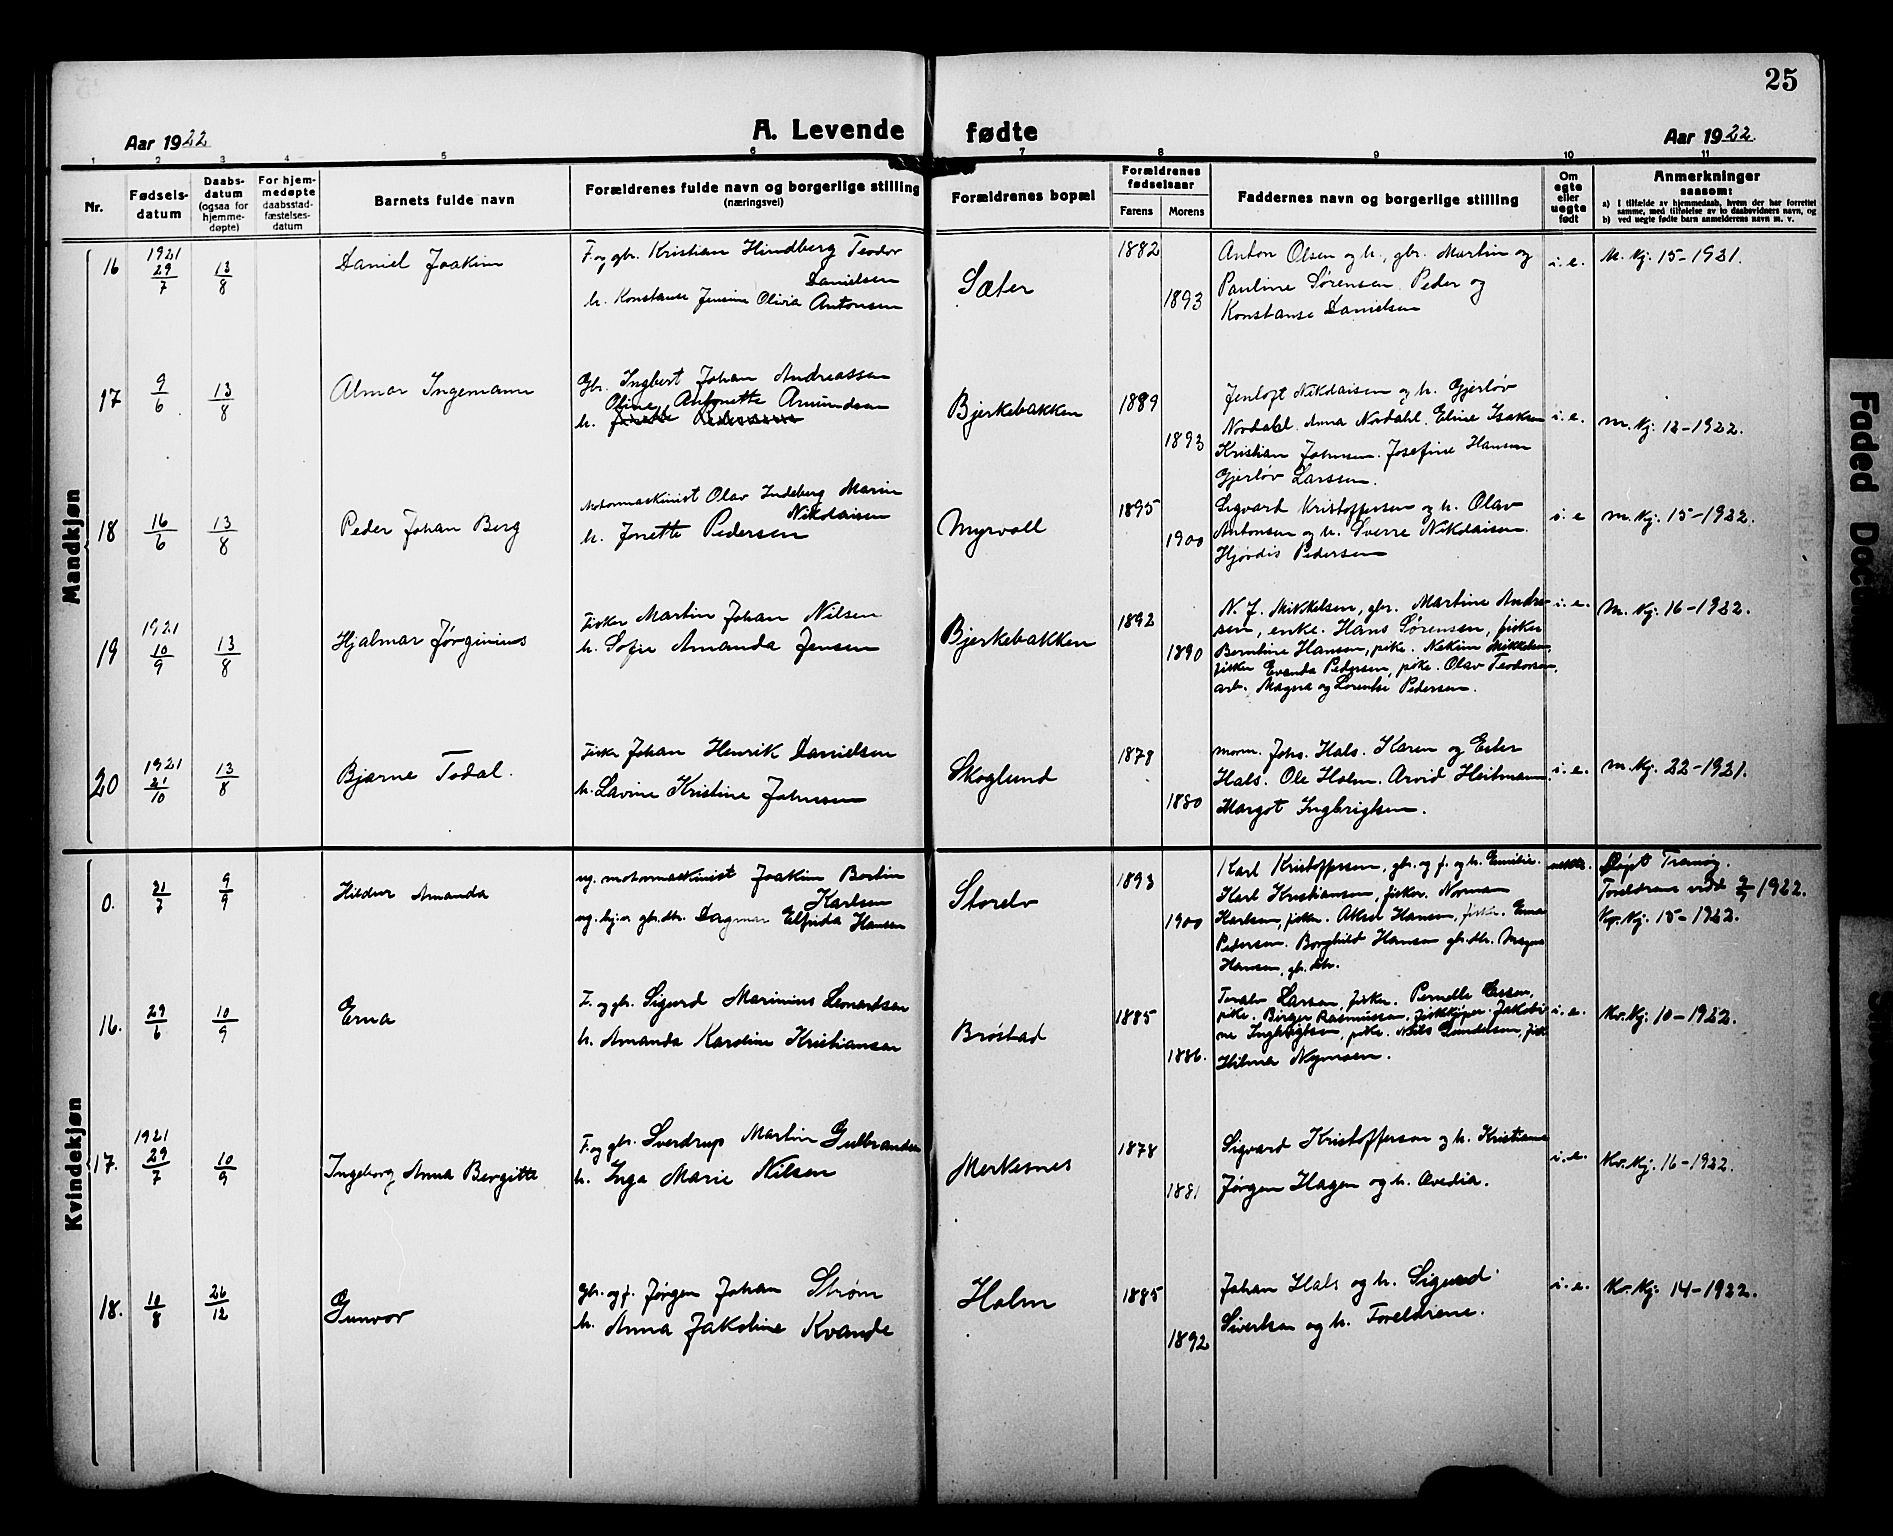 25
A. Levende fødte
Aar 1922
Aar 1922
1 2 3 4 5 6 7 8 9 10 11
Nr.
Fødselsdatum
Daabsdatum (ogsaa for hjemmedøpte)
For hjemmedøpte daabsstadfæstelsesdatum
Barnets fulde navn
Forældrenes fulde navn og borgerlige stilling (næringsvei)
Forældrenes bopæl
Forældrenes fødselsaar
Farens
Morens
Faddernes navn og borgerlige stilling
Om egte eller uegte født
Anmerkninger
saasom:
a) I tilfælde av hjemmedaab, hvem der har forrettet samme, med tilføielse av to daabsvidners navn, og
b) ved uegte fødte barn anmelderens navn m. v.
Mandkjøn
16
1921
29/7
13/8
Daniel Joakim
F. og gbr. Kristian Hindberg Teodor
Danielsen
h. Konstanse Jensine Olivia Antonsen
Sæter
1882
1893
Anton Olsen og h., gbr. Martin og
Pauline Sørensen. Peder og
Konstanse Danielsen
i. e.
M. Kj. 15-1921.
17
9/6
13/8
Almar Ingemann
Gbr. Ingbert Johan Andreassen
Oline Antonette Amundsen
h. Jonette Pedersen
Bjerkebakken
1889
1893
Jenloft Nikolaisen og h. Gjerløv
Nordahl. Anna Nordahl. Eline Isaksen
Kristian Johnsen. Josefine Hansen
Gjerløv Larssen.
i. e.
M. Kj. 12-1922.
18
16/6
13/8
Peder Johan Berg
Motormaskinist Olav Indeberg Marin
Nikolaisen
h. Jonette Pedersen
Myrvoll
1895
1900
Sigvard Kristoffersen og h. Olav
Antonsen og h. Sverre Nikolaisen.
Hjørdis Pedersen
i. e
M. Kj. 15-1922.
19
1921
10/9
13/8
Hjalmar Jørginius
Fisker Martin Johan Nilsen
h. Sofie Amanda Jensen
Bjerkebakken
1892
1890
N. J. Mikkelsen, gbr. Martine Andre-
sen, enke. Hans Sørensen, fisker
Berntine Hansen, pike. Nekim Mikkelsen,
fisker Evanda Pedersen, pike. Olav Teodorsen,
arb. Magna og Lorentse Pedersen.
i. e.
M. Kj. 16-1922.
20
1921
21/10
13/8
Bjarne Todal.
Fisker Johan Henrik Danielsen
h. Lavine Kristine Johnsen
Skoglund
1878
1880
Johs. Hals. Karen og Ester
Hals. Ole Holm. Arvid Heitmann
Margot Ingbrigtsen.
i. e.
M. Kj. 22-1921.
Kvindekjøn
0.
31/7
9/9
Hildur Amanda
ug. motormaskinist Joakim Bertin
Karlsen
ug. hj. gbr.dtr. Dagmar Elfrida Hansen
Storelv
1893
1900
Karl Kristoffersen, gbr. og f. og h. Emilie.
Karl Kristiansen, fisker. Norman
Karlsen, fisker. Aksel Hansen, fisker. Erna
Pedersen. Borghild Hansen gbr.dtr. Magna
Hansen, gbr. dtr.
Døpt Tranøy.
Foreldrene viet 9/9 1922.
Kv. Kj. 15-1922.
16.
29/6
10/9
Erna
F. og gbr. Sigurd Marinius Leonardsen
h. Amanda Karoline Kristiansen
Brøstad
1885
1886.
Toralv Larsen, fisker. Pernelle Larsen,
pike. Birger Rasmussen, fiskkjøper. Jakobi-
ne Ingebrigtsen, pike. Nils Gundersen, fisk
Hilma Nymoen.
i. e.
Kv. Kj. 10-1922.
17.
1921
29/7
10/9
Ingeborg Anna Bergitte
F. og gbr. Sverdrup Martin Gulbrandsen
h. Inga Marie Nilsen
Merkesnes
1878
1881
Sigvard Kristofferson og h. Kristiane
Jørgen Hagen og h. Ovedia.
i. e.
Kv. Kj. 16-1922.
18.
10/8
26/12
Gunvor
Gbr. og f. Jørgen Johan Strøm
h. Anna Jakobine Kvande
Holm
1885
1892
Johan Hals og h. Sigurd
Sivertsen og h. Foreldrene.
i. e.
Kv. Kj. 14-1922.
Faded Doc